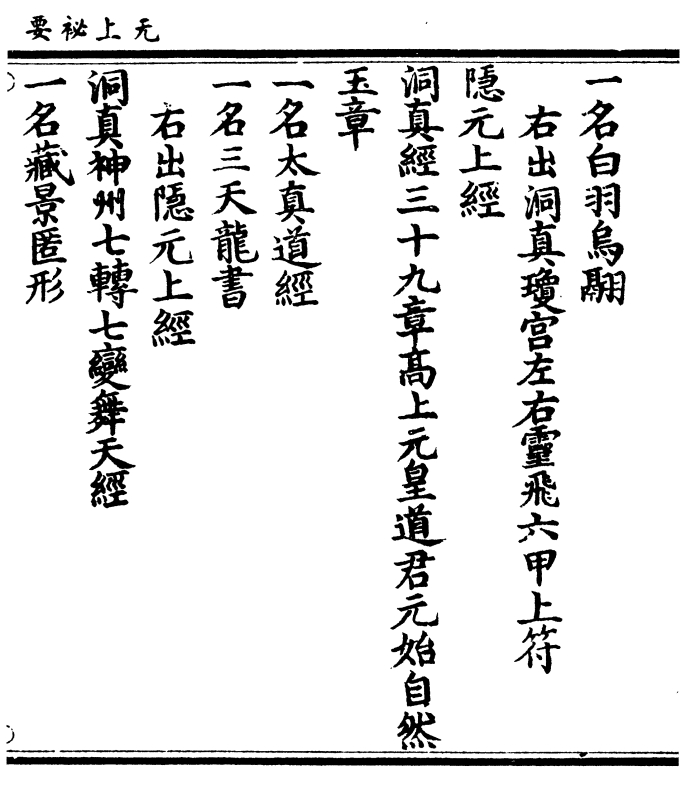 无上祕要
一名白羽烏翮
右出洞真瓊宮左右靈飛六甲上符
隱元上經
洞真經三十九章高上元皇道君元始自然
玉章
一名太真道經
一名三天龍書
右出隱元上經
洞真神州七轉七變舞天經
一名藏景匿形